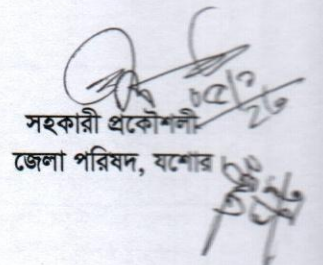 সহকারী প্রকৌশলী
জেলা পরিষদ, যশোর